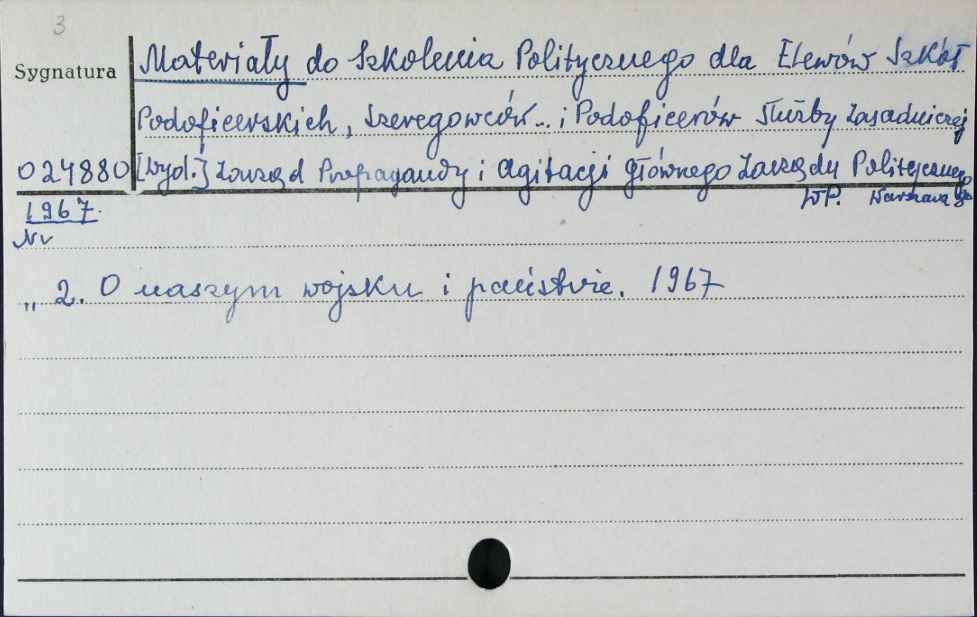 3
Sygnatura Materiały do Szkolenia Politycznego dla Elewów Szkół
Podoficerskich, Szeregowców.. i Podoficerów Służby Zasadniczej
024880 [Wyd.] Zarząd Propagandy i Agitacji Głównego Zarządu Politycznego
WP. Warszawa
1967.
Nr
„ 2. O naszym wojsku i państwie. 1967